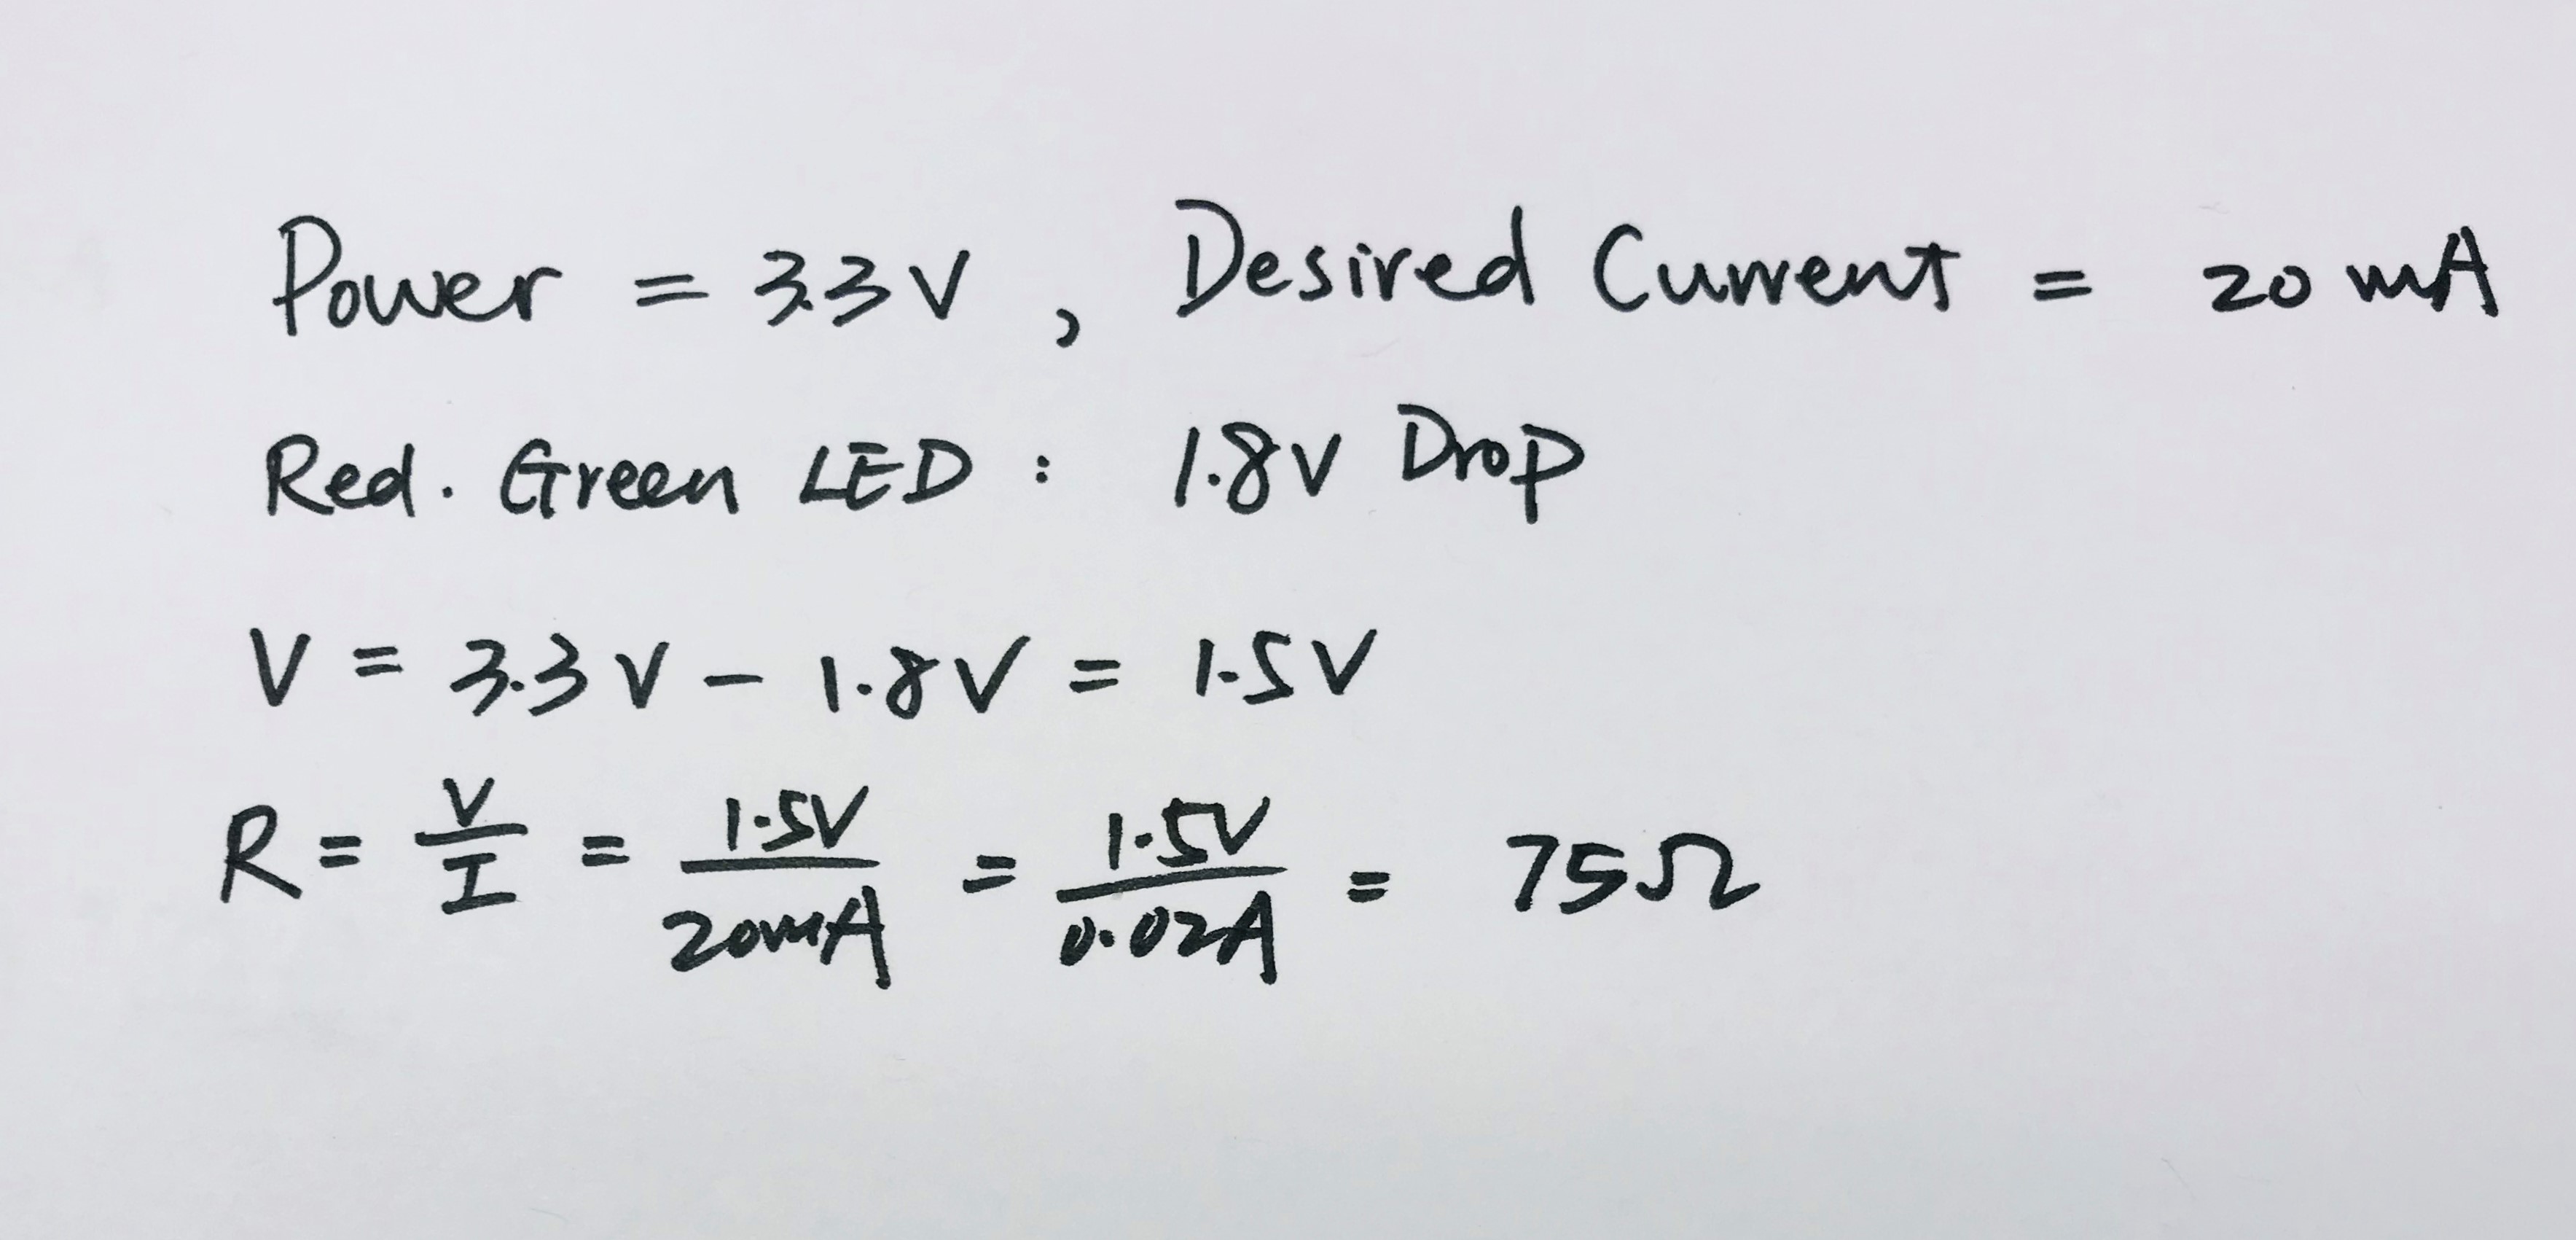 Power = 3.3V, Desired Current = 20mA
Red. Green LED: 1.8V Drop
V = 3.3V - 1.8V = 1.5V
R = V/I = 1.5V/20mA = 1.5V/0.02A = 75Ω